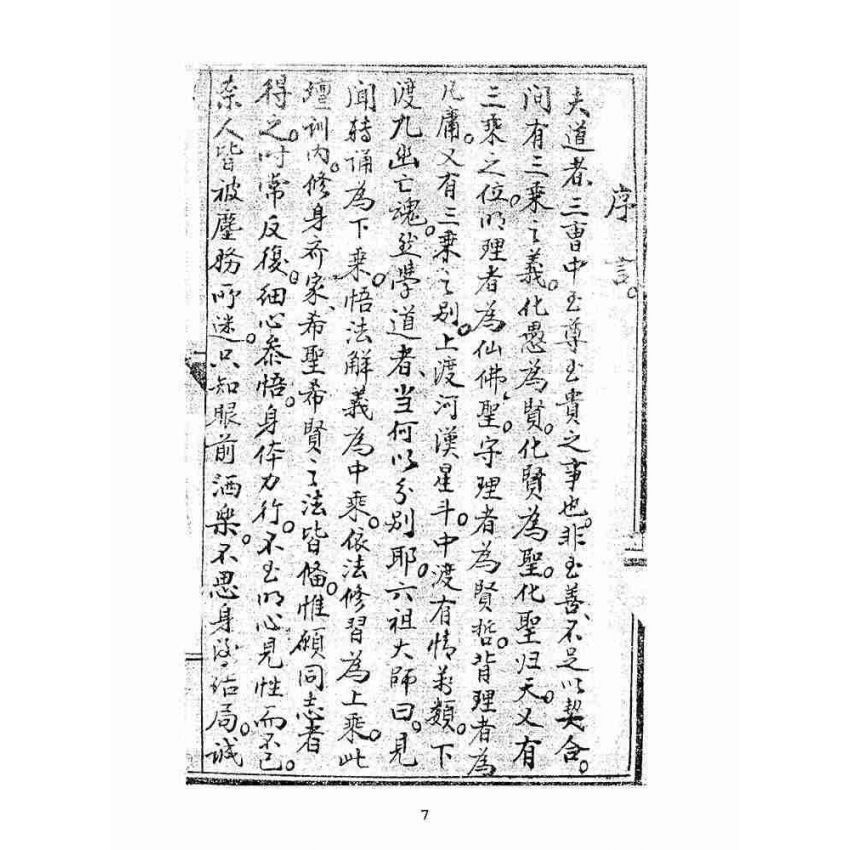 序言。
夫道者、三曹中至尊至貴之事也。非至善、不足以契合。
间有三乘之義。化愚為賢。化賢為聖。化聖归天。又有
三乘之位。明理者為仙佛聖。守理者為賢哲。背理者為
凡庸。又有三乘之别。上渡河漢星斗。中渡有情萬類。下
渡九幽亡魂。并學道者、当何以分别耶。六祖大師曰。見
闻轉誦為下乘。悟法解義為中乘。依法修習為上乘。此
壇训内。修身齐家、希聖希賢之法皆俻。惟願同志者
得之。时常反復。细心叅悟。身体力行。不至明心見性而不已。
柰人皆被塵務所迷。只知眼前洒樂。不思身後结局。诚
7